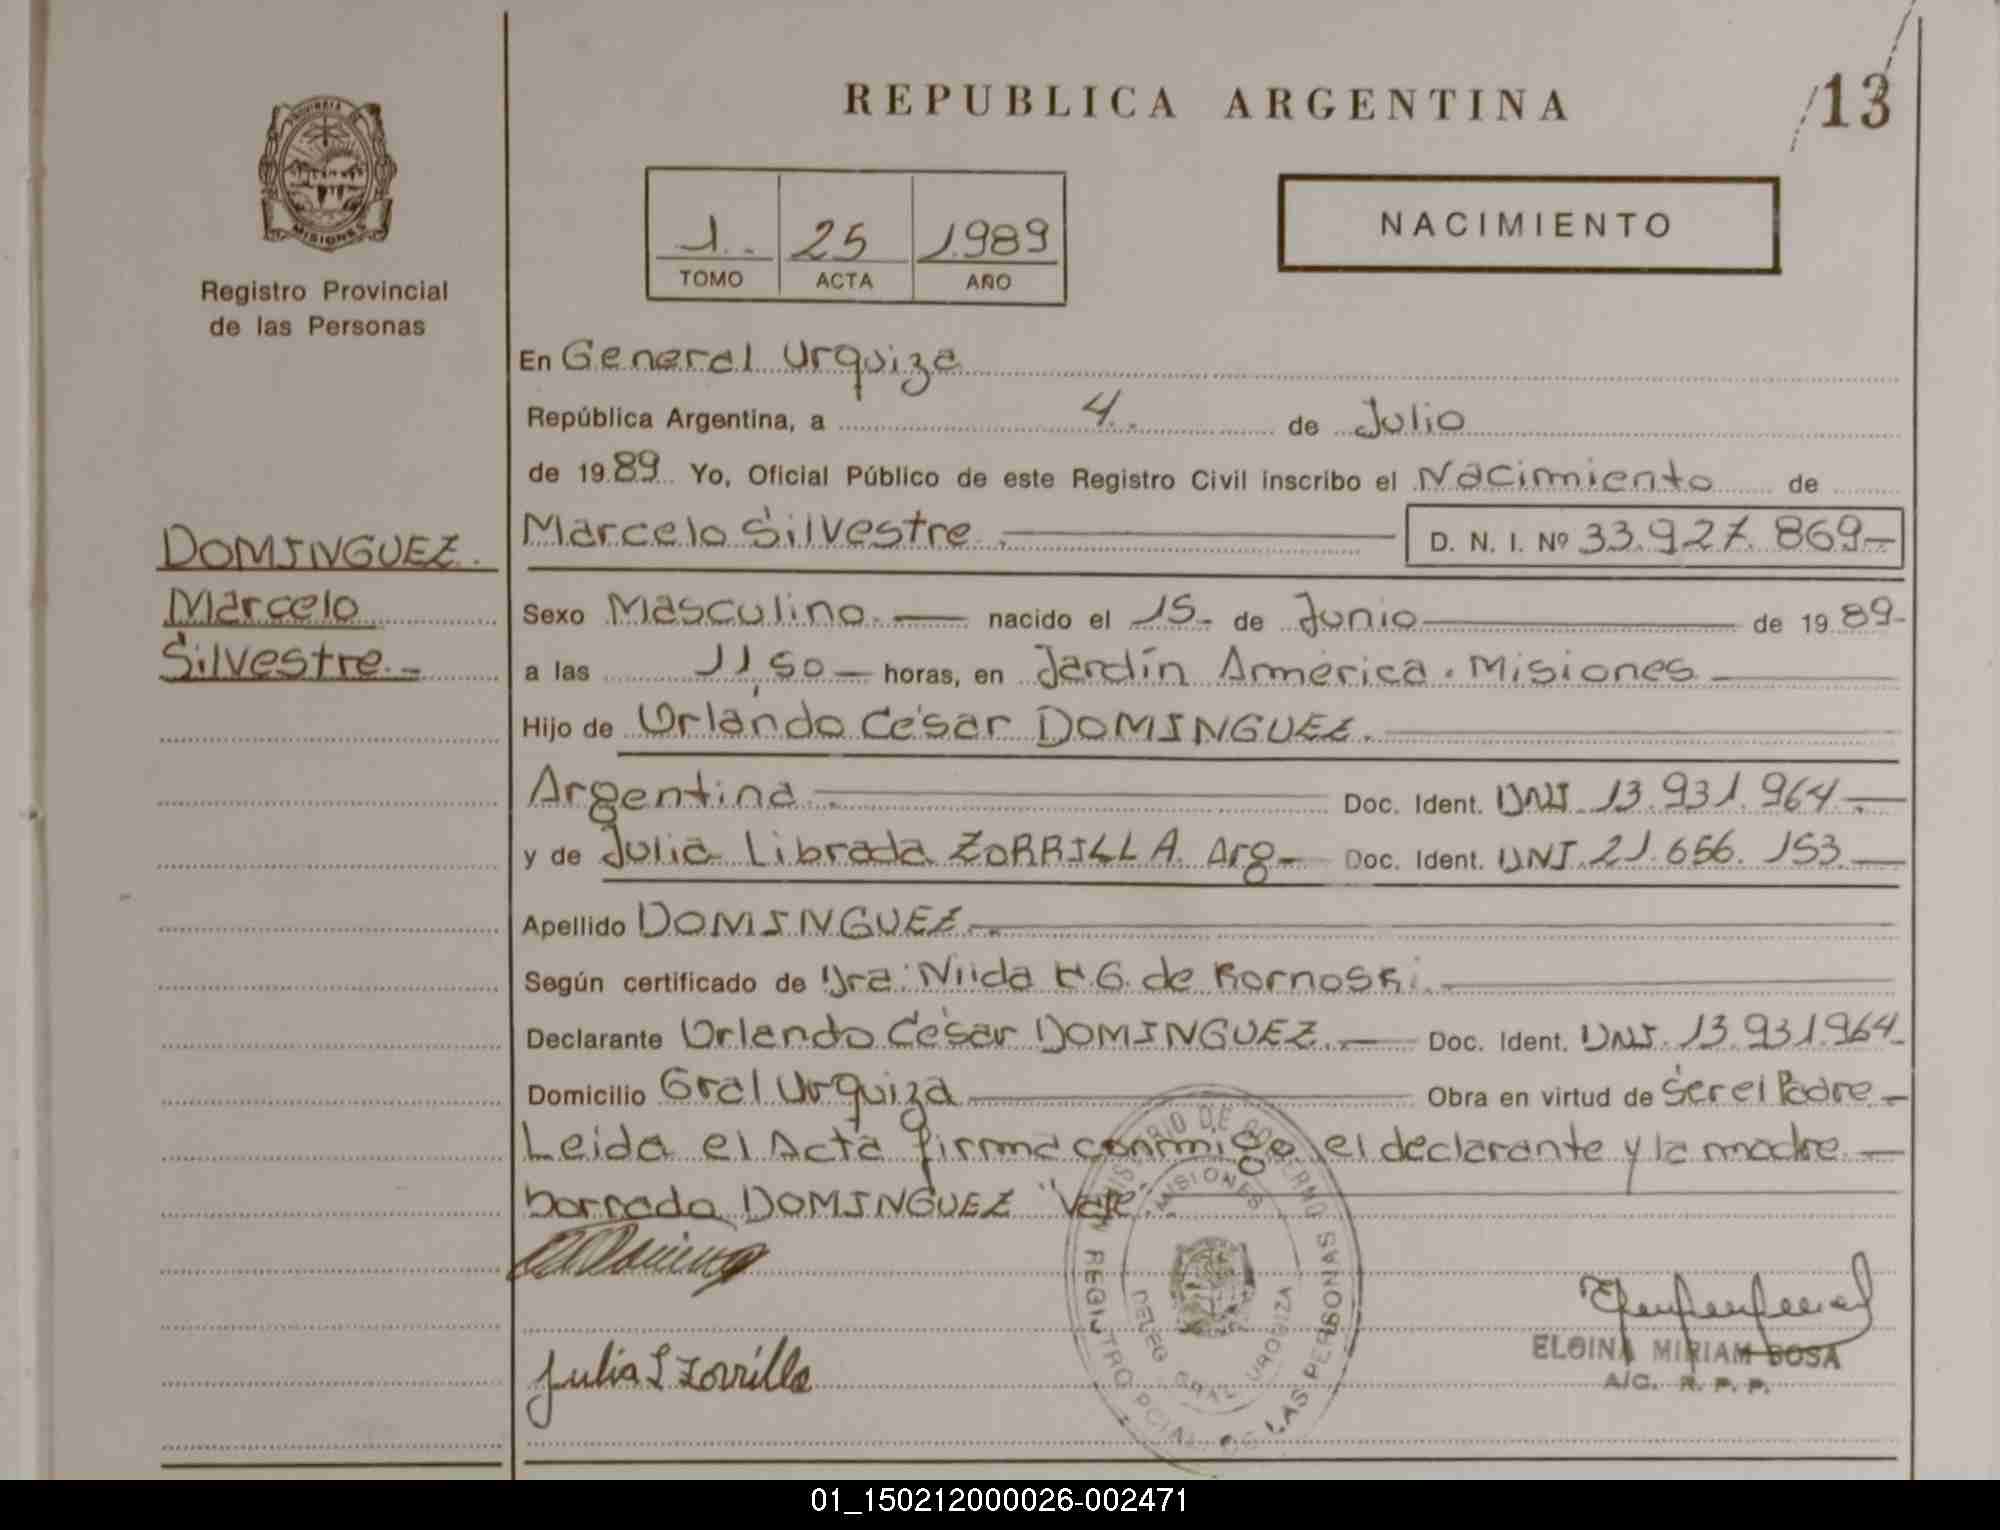 REPUBLICA ARGENTINA
13
PROVINCIA
MISIONES
Registro Provincial
de las Personas
1.. 25 1.989
TOMO ACTA AÑO
NACIMIENTO
En General Urquiza
República Argentina, a 4. de Julio
de 19 89 Yo, Oficial Público de este Registro Civil inscribo el Nacimiento de
Marcelo Silvestre. D. N. I. Nº 33.927.869-
DOMINGUEZ.
Marcelo
Silvestre.-
Sexo Masculino.- nacido el 15- de Junio de 19 89-
a las 11,50 - horas, en Jardín América. Misiones
Hijo de Orlando César DOMINGUEZ.
Argentina. Doc. Ident. DNI. 13.931.964.-
y de Julia Librada ZORRILLA. Arg- Doc. Ident. DNI. 21.656.153.-
Apellido DOMINGUEZ.
Según certificado de Dra: Nilda H.G. de
Declarante Orlando César DOMINGUEZ.- Doc. Ident. DNI. 13.931.964-
Domicilio Gral Urquiza Obra en virtud de Ser el Padre-
Leida el Acta firma conmigo el declarante y la madre-
borrado DOMINGUEZ "Vale"
Julia L Zorrilla
MINISTERIO DE GOBIERNO
MISIONES
DELEG GRAL URQUIZA
REGISTRO PCIAL. DE LAS PERSONAS
ELOINA MIRIAM SOSA
A/C. R. P. P.
01_150212000026-002471